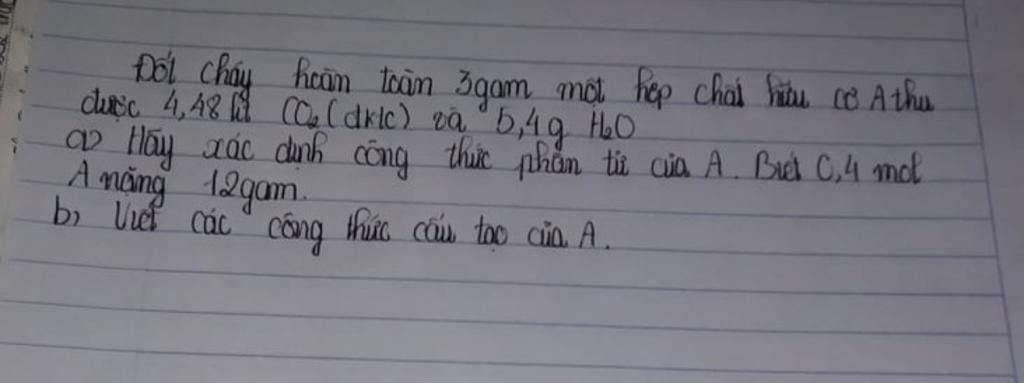 Đốt cháy hoàn toàn 3gam một hợp chất hữu cơ A thu
được 4,48 lít CO₂ (đktc) và 5,4g H₂O
a) Hãy xác định công thức phân tử của A. Biết 0,4 mol
A nặng 12gam.
b) Viết các công thức cấu tạo của A.